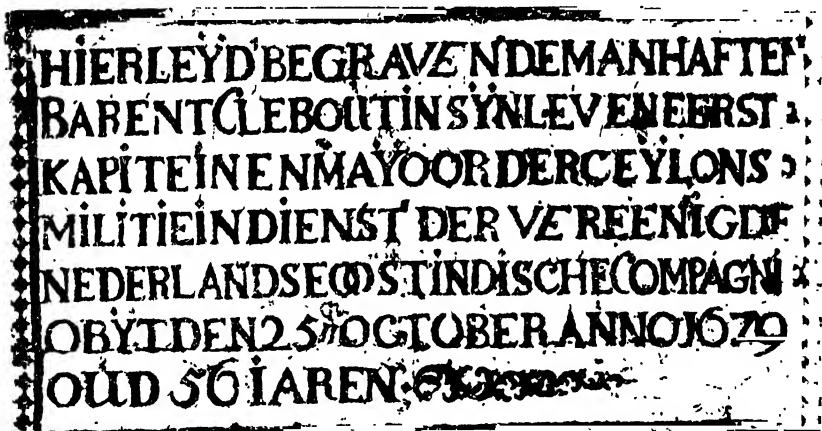 HIER LEYD BEGRAVEN DE MANHAFTEN
BARENT CLEBOUT IN SYN LEVEN EERST
KAPITEIN EN MAYOOR DER CEYLONS
MILITIE IN DIENST DER VEREENIGDE
NEDERLANDSE OOSTINDISCHE COMPAGNI
OBYT DEN 25en OCTOBER ANNO 1679
OUD 56 IAREN